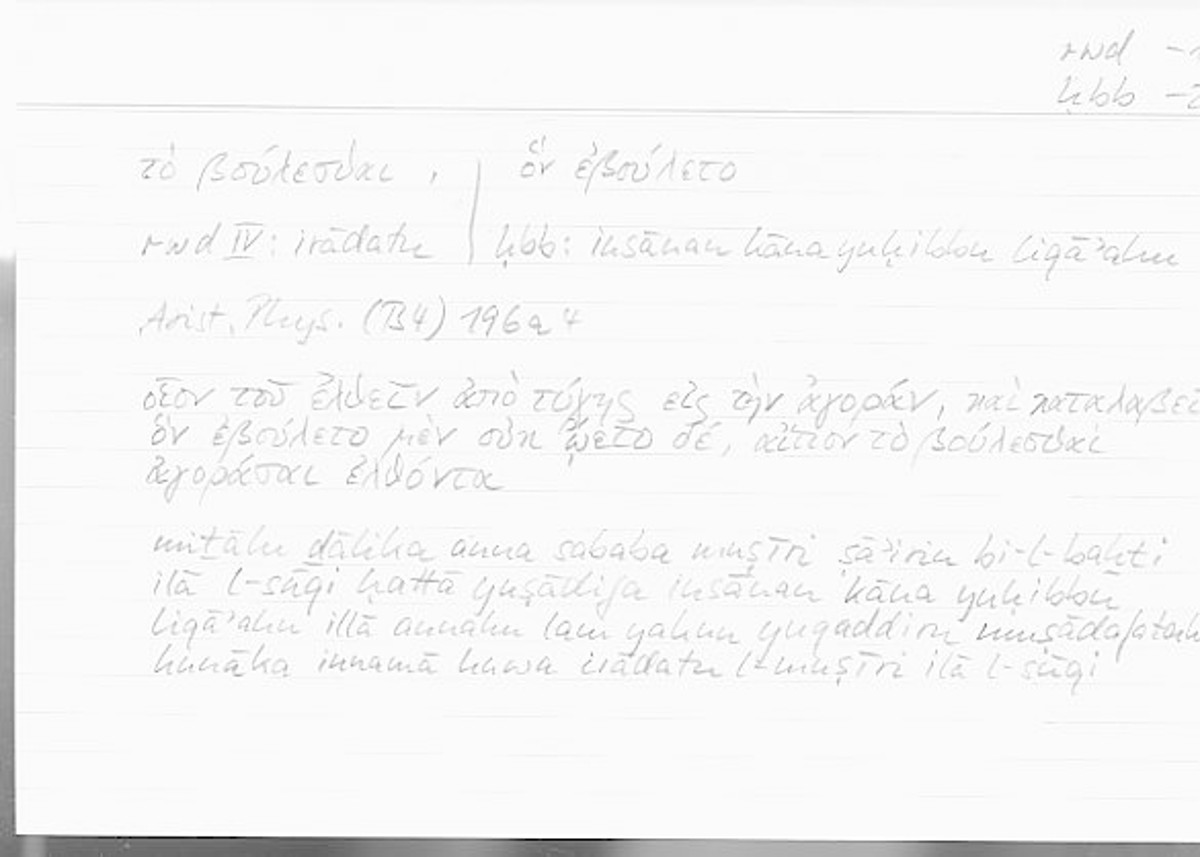 rwd
ḥbb
τὸ βούλεσθαι, | ὃν ἐβούλετο
rwd IV: irādatu | ḥbb: insānan kāna yuḥibbu liqāʾahu
Arist. Phys. (B4) 196a4
οἷον τοῦ ἐλθεῖν ἀπὸ τύχης εἰς τὴν ἀγοράν, καὶ
ὃν ἐβούλετο μὲν οὐκ ᾤετο δέ, αἴτιον τὸ βούλεσθαι
ἀγοράσαι ἐλθόντα
miṯālu ḏālika anna sababa ilā bi-l-baḫti
ilā l-sūqi ḥattā yuṣādifa insānan kāna yuḥibbu
liqāʾahu illā annahu lam yakun yuqaddiru
hunāka innamā huwa irādatu ilā l-sūqi